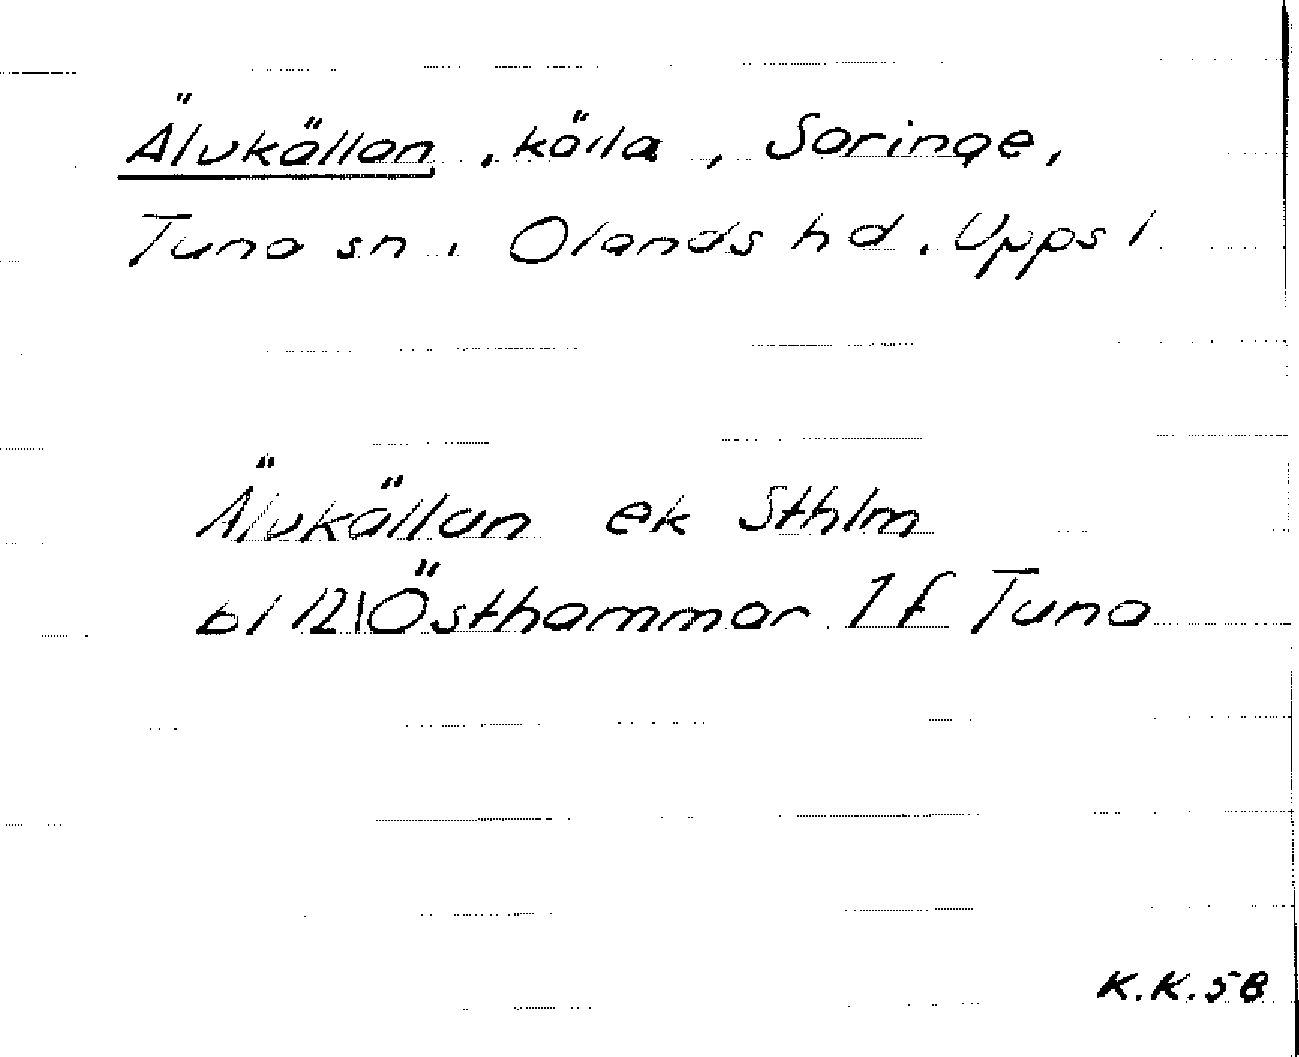 Älvkällan, källa, Soringe,
Tuna sn. Olands hd. Upps l
Älvkällan ek Sthlm
bl 12 Östhammar 7 f Tuna
K.K.58